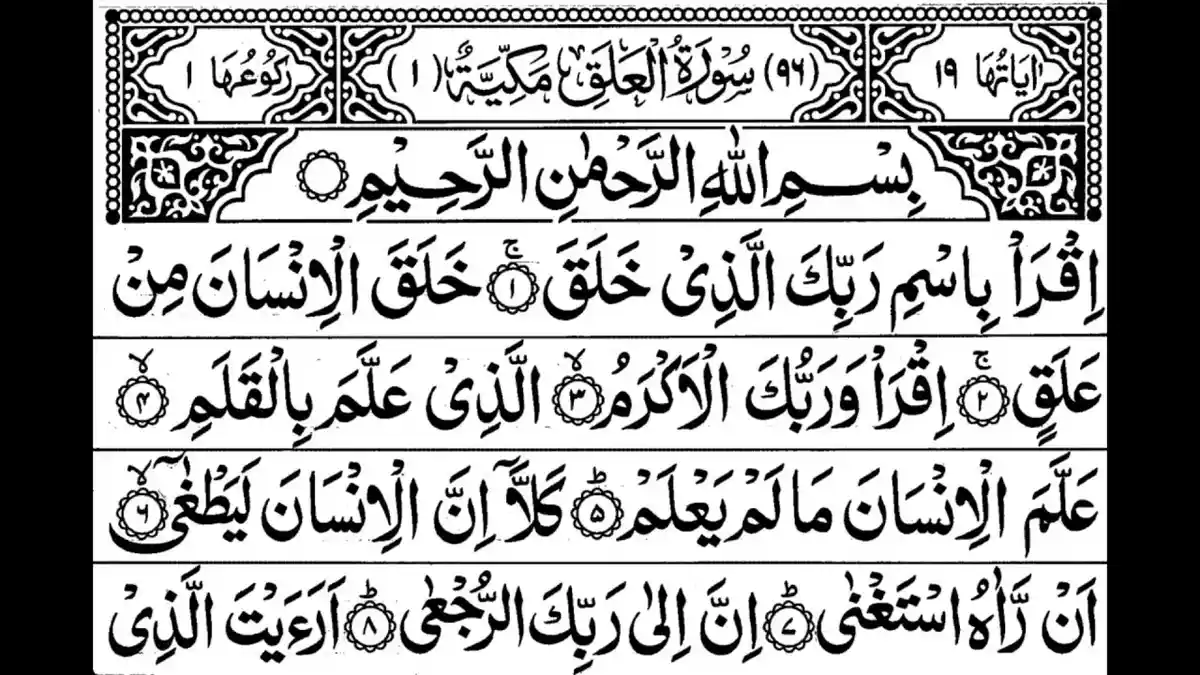 اٰيَاتُهَا ١٩ (٩٦) سُوْرَةُ الْعَلَقِ مَكِّيَّةٌ (١) رُكُوْعُهَا ١
بِسْمِ اللّٰهِ الرَّحْمٰنِ الرَّحِيْمِ
اِقْرَاْ بِاسْمِ رَبِّكَ الَّذِيْ خَلَقَ ۚ ١ خَلَقَ الْاِنْسَانَ مِنْ
عَلَقٍ ۚ ٢ اِقْرَاْ وَرَبُّكَ الْاَكْرَمُ ۙ ٣ الَّذِيْ عَلَّمَ بِالْقَلَمِ ۙ ۴
عَلَّمَ الْاِنْسَانَ مَا لَمْ يَعْلَمْ ؕ ۵ كَلَّاۤ اِنَّ الْاِنْسَانَ لَيَطْغٰٓى ۙ ۶
اَنْ رَّاٰهُ اسْتَغْنٰى ؕ ۷ اِنَّ اِلٰى رَبِّكَ الرُّجْعٰى ؕ ۸ اَرَءَيْتَ الَّذِيْ